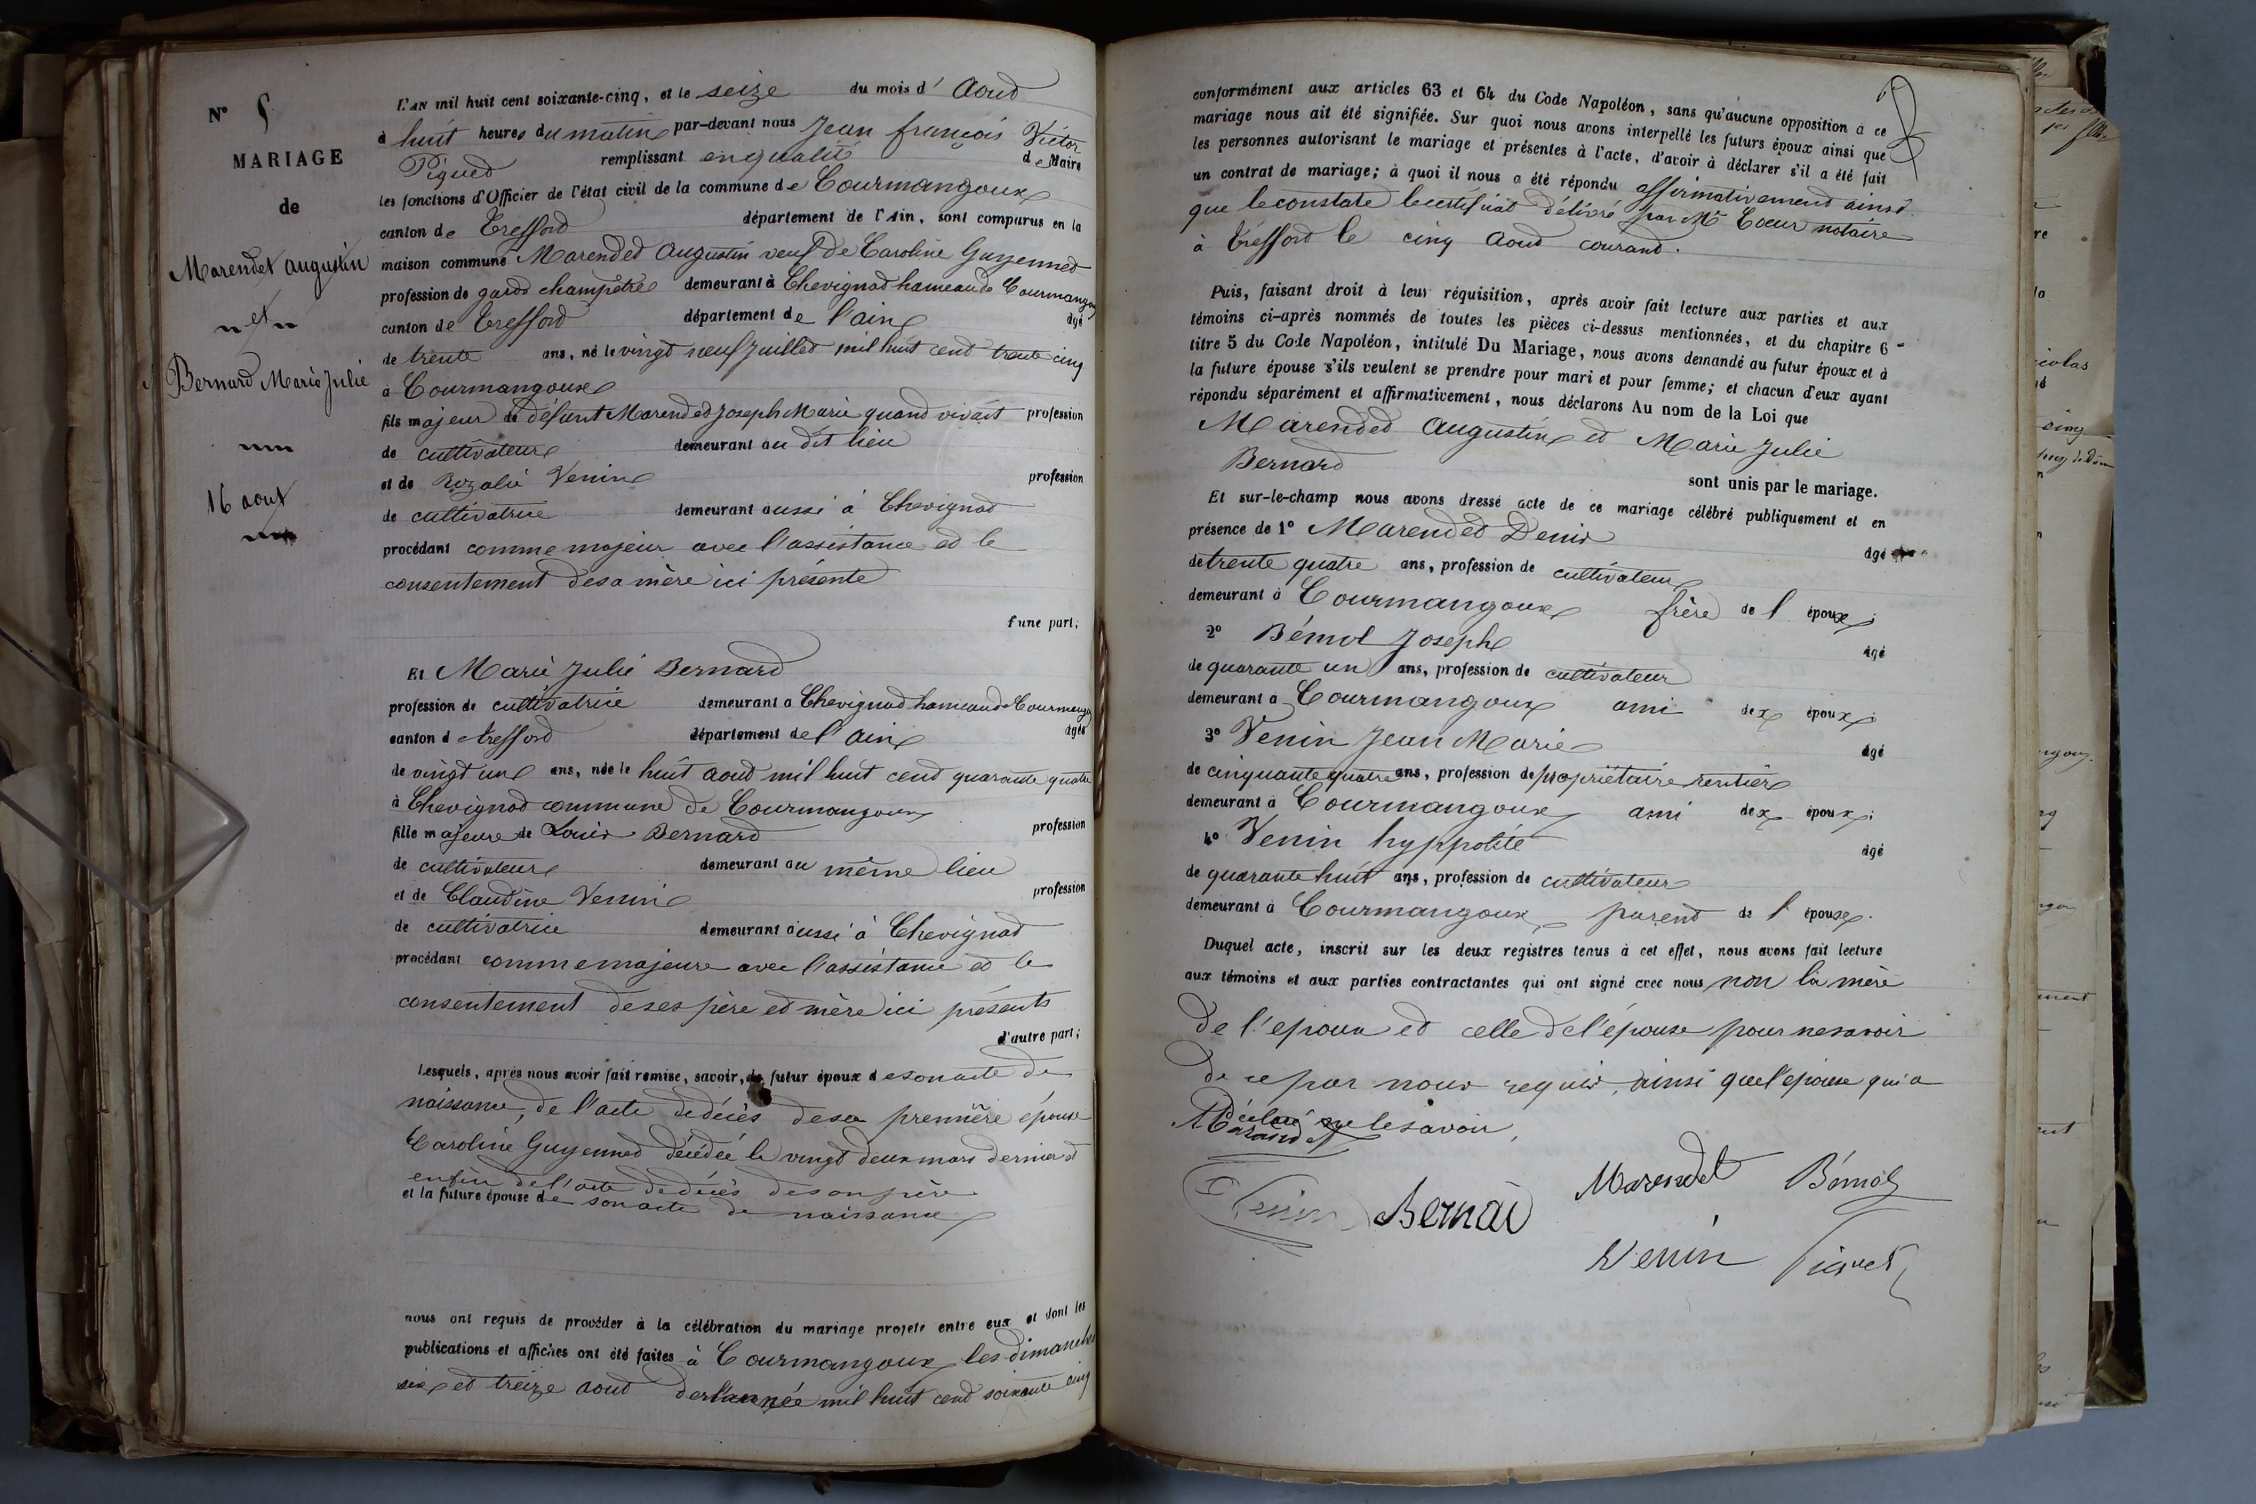 N° 5
MARIAGE
de
Marendet augustin
et
Bernard Marie Julie
16 aout
L'AN mil huit cent soixante-cinq, et le seize du mois d' Aoud
à huit heures du matin par-devant nous Jean françois Victor
Piqued remplissant en qualité de Maire
les fonctions d'Officier de l'état civil de la commune de Courmangoux
canton de Trefford département de l'Ain, sont comparus en la
maison commune Marended Augustin veuf de Caroline Guyenned
profession de garde champêtre demeurant à Chevignad hameau de Courmangoux
canton de Trefford département de l'ain âgé
de trente ans, né le vingt neuf Juillet mil huit cend trente cinq
à Courmangoux
fils majeur de défunt Marended Joseph Marie quand vivait profession
de cultivateur demeurant au dit lieu
et de Rozalie Venin profession
de cultivatrice demeurant aussi à Chevignad
procédant comme majeur avec l'assistance et le
consentement de sa mère ici présente
d'une part;
Et Marie Julie Bernard
profession de cultivatrice demeurant à Chevignad hameau de Courmangoux
canton de trefford département de l'ain âgée
de vingt un ans, née le huit aoud mil huit cend quarante quatre
à Chevignad commune de Courmangoux
fille majeure de Louis Bernard profession
de cultivateur demeurant au même lieu
et de Claudine Venin profession
de cultivatrice demeurant aussi à Chevignad
procédant comme majeure avec l'assistance et le
consentement de ses père et mère ici présents
d'autre part;
Lesquels, après nous avoir fait remise, savoir, le futur époux de son acte de
naissance, de l'acte de décès de sa première épouse
Caroline Guyenned décédée le vingt deux mars dernier et
enfin de l'acte de décès de son père
et la future épouse de son acte de naissance
nous ont requis de procéder à la célébration du mariage projeté entre eux et dont les
publications et affiches ont été faites à Courmangoux les dimanches
six et treize aoud de l'année mil huit cend soixante cinq
conformément aux articles 63 et 64 du Code Napoléon, sans qu'aucune opposition à ce
mariage nous ait été signifiée. Sur quoi nous avons interpellé les futurs époux ainsi que
les personnes autorisant le mariage et présentes à l'acte, d'avoir à déclarer s'il a été fait
un contrat de mariage; à quoi il nous a été répondu affirmativement ainsi
que le constate le certificat délivré par Me Coeur notaire
à Trefford le cinq Aoud courand.
Puis, faisant droit à leur réquisition, après avoir fait lecture aux parties et aux
témoins ci-après nommés de toutes les pièces ci-dessus mentionnées, et du chapitre 6
titre 5 du Code Napoléon, intitulé Du Mariage, nous avons demandé au futur époux et à
la future épouse s'ils veulent se prendre pour mari et pour femme; et chacun d'eux ayant
répondu séparément et affirmativement, nous déclarons Au nom de la Loi que
Marended Augustin et Marie Julie
Bernard
sont unis par le mariage.
Et sur-le-champ nous avons dressé acte de ce mariage célébré publiquement et en
présence de 1° Marended Denis âgé
de trente quatre ans, profession de cultivateur
demeurant à Courmangoux frère de l' époux;
2° Bémol Joseph âgé
de quarante un ans, profession de cultivateur
demeurant à Courmangoux ami dex époux;
3° Venin Jean Marie âgé
de cinquante quatre ans, profession de propriétaire rentier
demeurant à Courmangoux ami dex époux;
4° Venin hyppolite âgé
de quarante huit ans, profession de cultivateur
demeurant à Courmangoux parend de l' épouse.
Duquel acte, inscrit sur les deux registres tenus à cet effet, nous avons fait lecture
aux témoins et aux parties contractantes qui ont signé avec nous non la mère
de l'epoux et celle de l'épouse pour ne savoir
de ce par nous requis, ainsi que l'epouse qui a
déclaré ne le savoir
Marendet
Venin Bernard Marendet Bémol
Venin Piqued